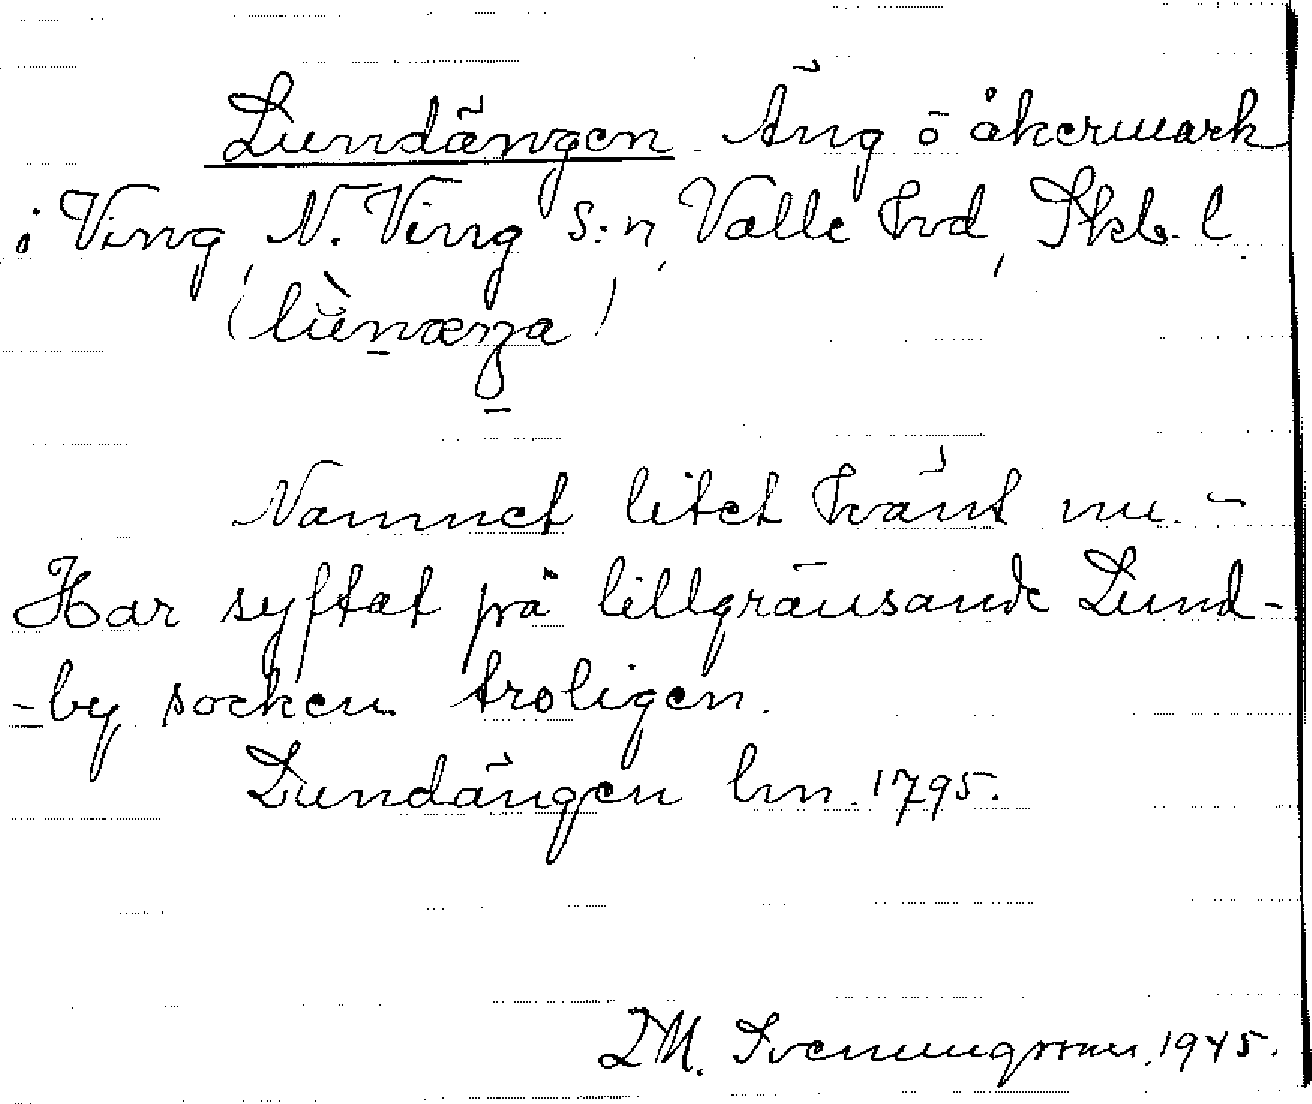 Lundängen Äng o åkermark
i Ving, N. Ving s:n, Valle hvd, Skb. l.
Namnet litet känt nu. -
Har syftat på tillgränsande Lund-
-by socken troligen.
Lundängen lm. 1795.
Svenungsson, 1945.